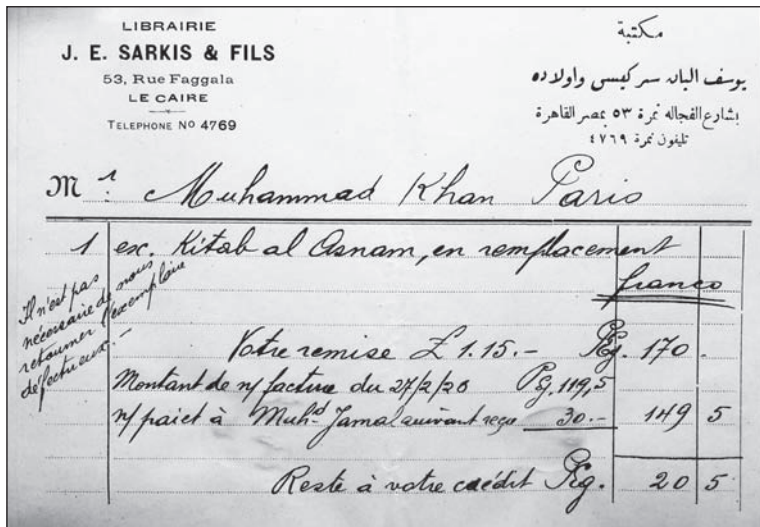 LIBRAIRIE
J. E. SARKIS & FILS
53, Rue Faggala
LE CAIRE
TELEPHONE NO 4769
مكتبة
يوسف اليان سركيس واولاده
بشارع الفجاله نمرة ٥٣ بمصر القاهرة
تليفون نمرة ٤٧٦٩
Mr. Muhammad Khan Paris
1 ex. Kitab al Asnam, en remplacement
franco
Il n'est pas
nécessaire de nous
retourner l'exemplaire
défectueux.-
Votre remise £ 1.15.- PEg. 170.
Montant de n/ facture du 27/2/26 Pg. 119,5
n/ paict à Muhd. Jamal suivant reçu 30.- 149 5
Reste à votre crédit PEg. 20 5